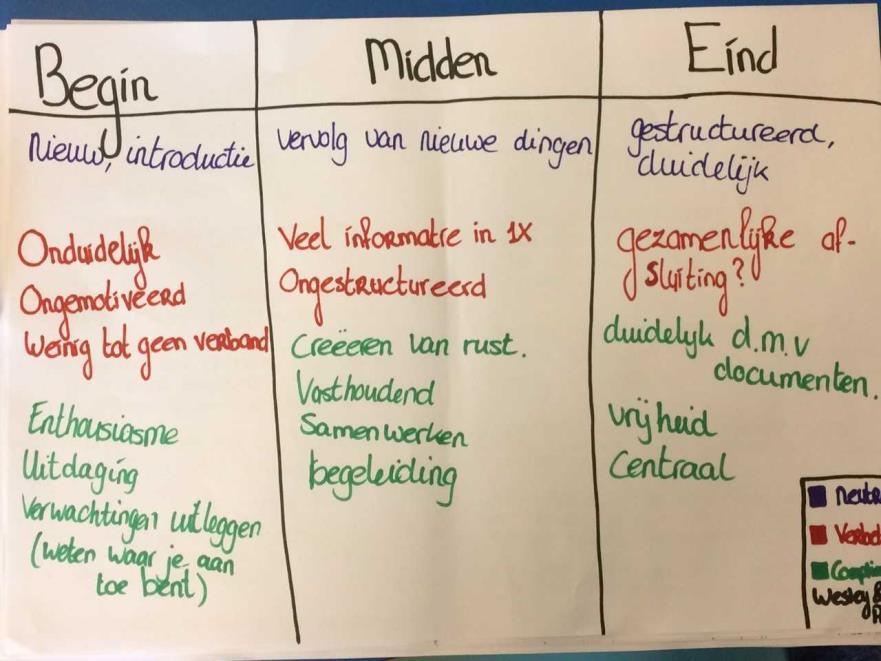 Begin
nieuw, introductie
Onduidelijk
Ongemotiveerd
Weinig tot geen verband
Enthousiasme
Uitdaging
Verwachtingen uitleggen
(weten waar je aan
toe bent)
Midden
vervolg van nieuwe dingen
Veel informatie in 1x
Ongestructureerd
Creëeren van rust.
Vasthoudend
Samenwerken
begeleiding
Eind
gestructureerd,
duidelijk
gezamenlijke af-
sluiting?
duidelijk d.m.v
documenten.
vrijheid
Centraal
Wesley